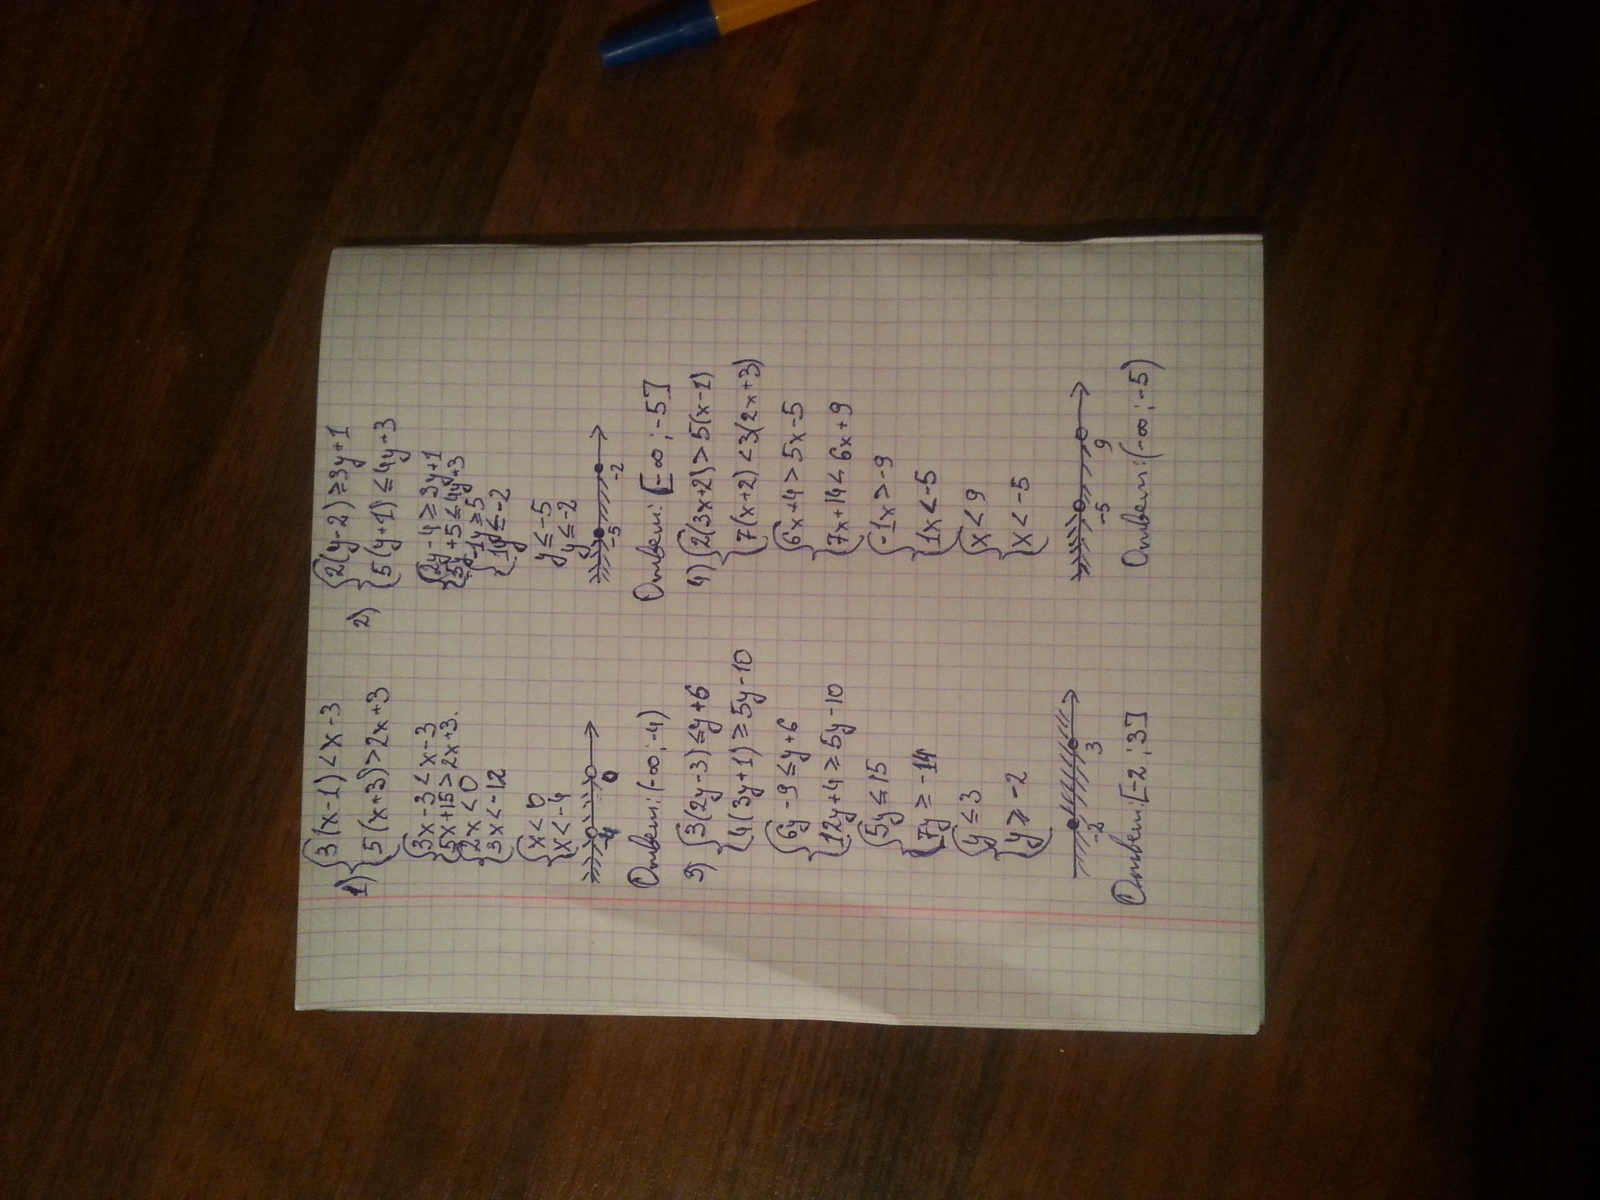 1) {3(x-1)<x-3
{5(x+3)>2x+3
{3x-3<x-3
{5x+15>2x+3.
{2x<0
{3x<-12
{x<0
{x<-4
-4 0
Ответ:(-∞;-4)
2) {2(y-2)≥3y+1
{5(y+1)≤4y+3
{2y-4≥3y+1
{5y+5≤4y+3
{-1y≥5
{1y≤-2
y≤-5
y≤-2
-5 -2
Ответ:[-∞;-5]
3) {3(2y-3)≤y+6
{4(3y+1)≥5y-10
{6y-9≤y+6
{12y+4≥5y-10
{5y≤15
{7y≥-14
{y≤3
{y≥-2
-2 3
Ответ:[-2;3]
4) {2(3x+2)>5(x-1)
{7(x+2)<3(2x+3)
{6x+4>5x-5
{7x+14<6x+9
{-1x>-9
{1x<-5
{x<9
{x<-5
-5 9
Ответ:(-∞;-5)